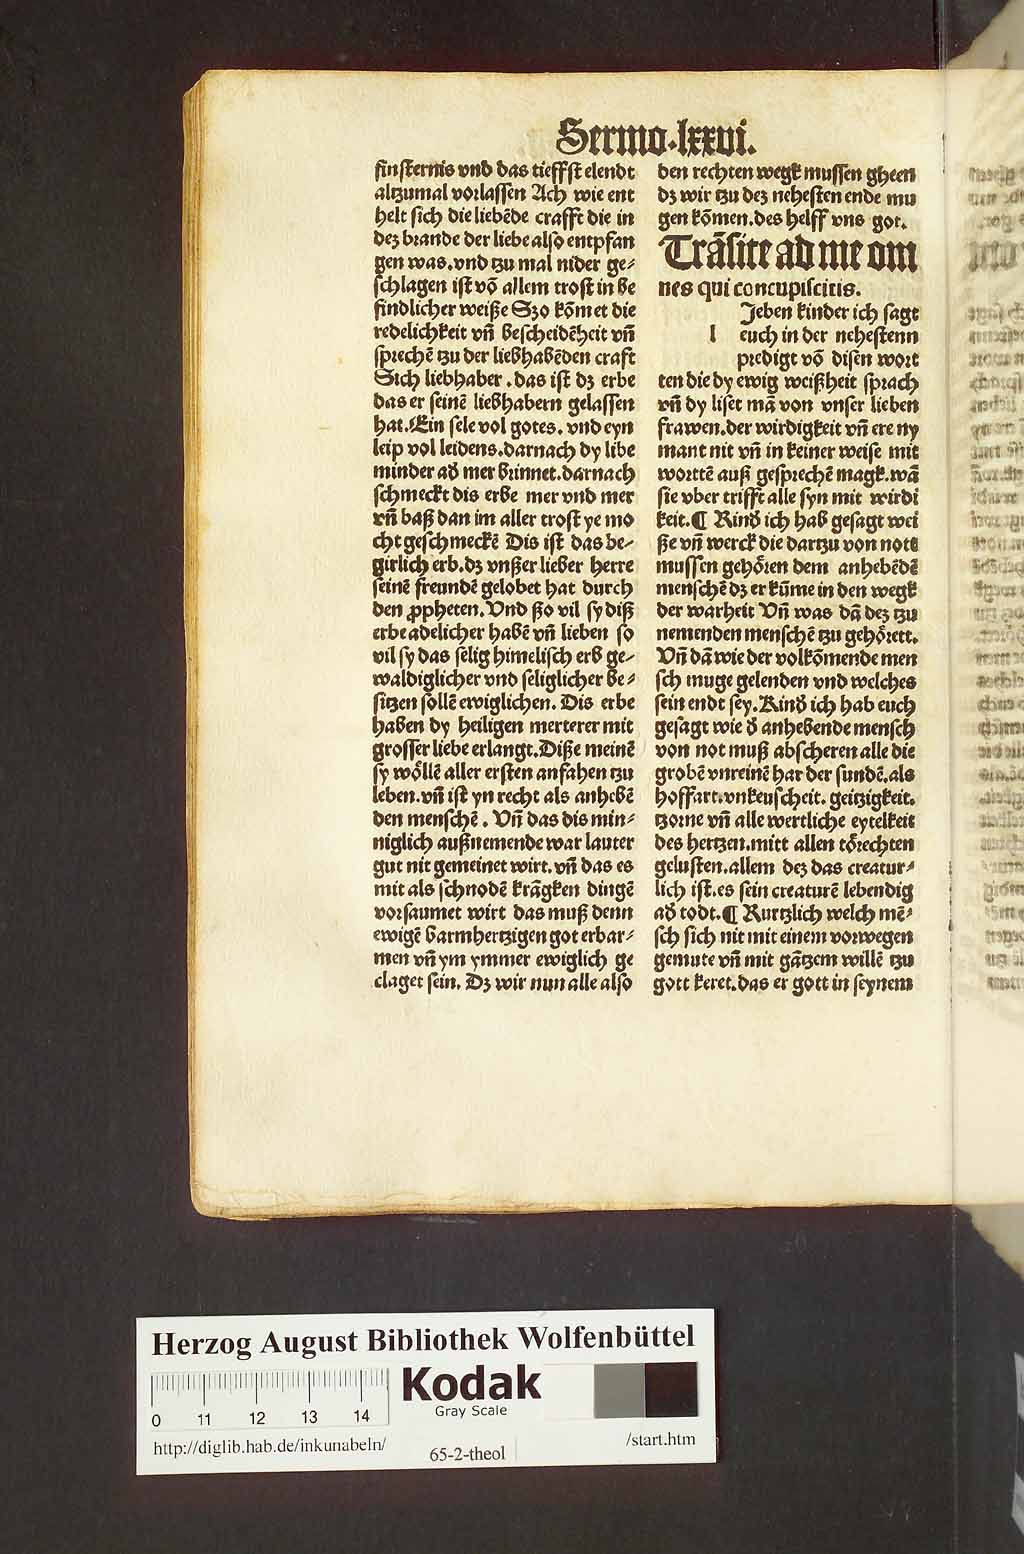 Sermo.lxxvi.
finsternis vnd das tieffst elendt
altzumal vorlassen Ach wie ent
helt sich die liebēde crafft die in
dez brande der liebe also entpfan
gen was.vnd tzu mal nider ge⸗
schlagen ist vō allem trost in be
findlicher weiße Szo kōmet die
redelichkeit vn̄ bescheidēheit vn̄
sprechē tzu der liebhabēden craft
Sich liebhaber.das ist dz erbe
das er seinē liebhabern gelassen
hat.Ein sele vol gotes.vnd eyn
leip vol leidens.darnach dy libe
minder ad̕ mer brinnet.darnach
schmeckt dis erbe mer vnd mer
vn̄ baß dan im aller trost ye mo
cht geschmeckē Dis ist das be⸗
girlich erb.dz vnßer lieber herre
seinē freundē gelobet hat durch
den ꝓpheten.Vnd ßo vil sy diß
erbe adelicher habē vn̄ lieben so
vil sy das selig himelisch erb ge⸗
waldiglicher vnd seliglicher be⸗
sitzen sollē ewiglichen. Dis erbe
haben dy heiligen merterer mit
grosser liebe erlangt.Diße meinē
sy wöllē aller ersten anfahen tzu
leben.vn̄ ist yn recht als anhebē
den menschē. Vn̄ das dis min⸗
niglich außnemende war lauter
gut nit gemeinet wirt.vn̄ das es
mit als schnodē krāgken dingē
vorsaumet wirt das muß denn
ewigē barmhertzigen got erbar⸗
men vn̄ ym ymmer ewiglich ge
claget sein. Dz wir nun alle also
den rechten wegk mussen gheen
dz wir tzu dez nehesten ende mu
gen kōmen.des helff vns got.
Trāsite ad me om
nes qui concupiscitis.
Jeben kinder ich sagt
l euch in der nehestenn
predigt vō disen wort
ten die dy ewig weißheit sprach
vn̄ dy liset mā von vnser lieben
frawen.der wirdigkeit vn̄ ere ny
mant nit vn̄ in keiner weise mit
worttē auß gesprechē magk.wā
sie vber trifft alle syn mit wirdi
keit.¶ Kind̕ ich hab gesagt wei
ße vn̄ werck die dartzu von note
mussen gehören dem anhebēdē
menschē dz er kūme in den wegk
der warheit Vn̄ was dā dez tzu
nemenden menschē tzu gehörett.
Vn̄ dā wie der volkōmende men
sch muge gelenden vnd welches
sein endt sey.Kind̕ ich hab euch
gesagt wie d̕ anhebende mensch
von not muß abscheren alle die
grobē vnreinē har der sundē.als
hoffart.vnkeuscheit.geitzigkeit.
tzorne vn̄ alle wertliche eytelkeit
des hertzen.mitt allen törechten
gelusten.allem dez das creatur⸗
lich ist.es sein creaturē lebendig
ad̕ todt.¶ Kurtzlich welch mē⸗
sch sich nit mit einem vorwegen
gemute vn̄ mit gātzem willē tzu
gott keret.das er gott in seynem
Herzog August Bibliothek Wolfenbüttel
Kodak
Gray Scale
0 11 12 13 14
http://diglib.hab.de/inkunabeln/
65-2-theol
/start.htm